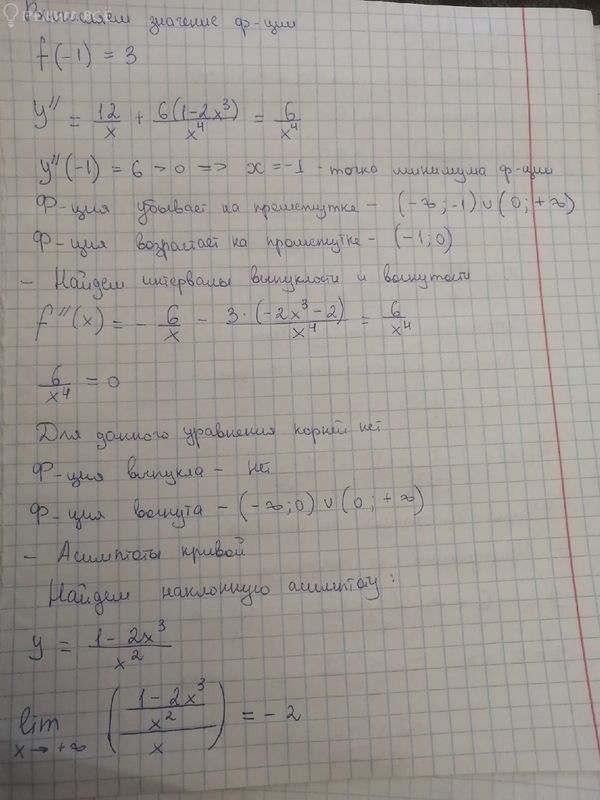 Вычисляем значение ф-ции
f(-1) = 3
y'' = 12/x + 6(1-2x³)/x⁴ = 6/x⁴
y''(-1) = 6 > 0 => x = -1 - точка минимума ф-ции
Ф-ция убывает на промежутке - (-∞; -1) ∪ (0; +∞)
Ф-ция возрастает на промежутке - (-1; 0)
- Найдем интервалы выпуклости и вогнутости
f''(x) = - 6/x - 3·(-2x³-2)/x⁴ = 6/x⁴
6/x⁴ = 0
Для данного уравнения корней нет
Ф-ция выпукла - нет
Ф-ция вогнута - (-∞; 0) ∪ (0; +∞)
- Асимптоты кривой
Найдем наклонную асимптоту:
y = (1-2x³)/x²
lim x→+∞ (((1-2x³)/x²)/x) = -2